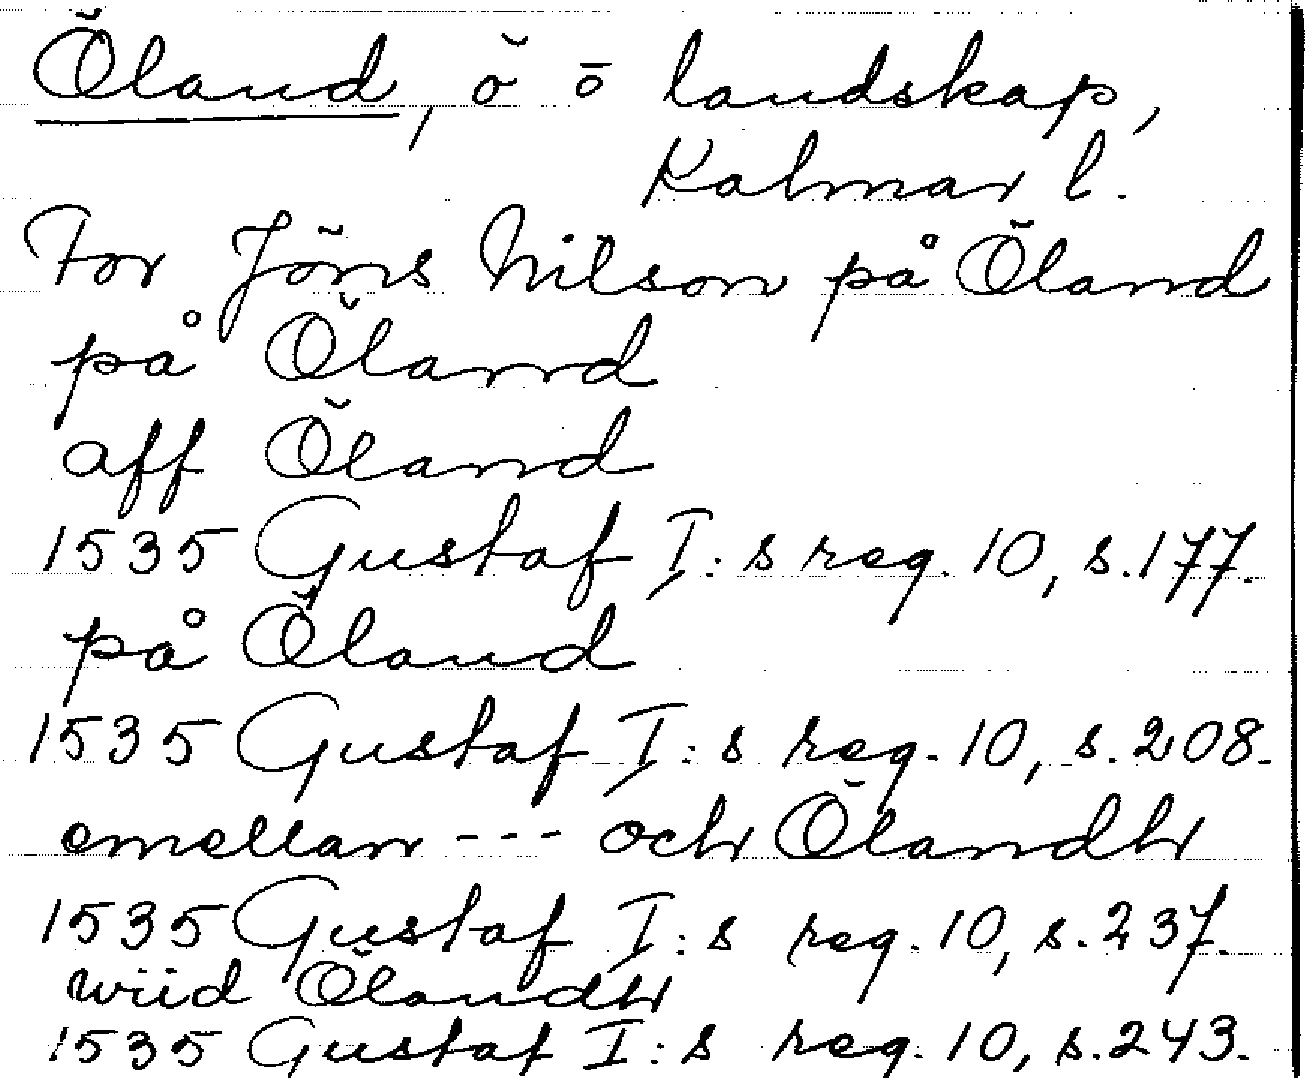 Öland, ö ō landskap,
Kalmar l.
For Jöns Nilson på Öland
på Öland
aff Öland
1535 Gustaf I:s reg. 10, s. 177.
på Öland
1535 Gustaf I:s reg. 10, s. 208.
emellan --- och Ölandh
1535 Gustaf I:s reg. 10, s. 237.
wiid Ölandh
1535 Gustaf I:s reg. 10, s. 243.